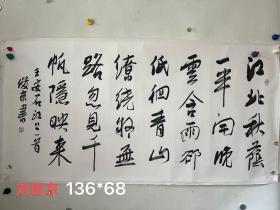 江北秋蔭
一半開晚
雲含雨卻
低徊青山
繚繞疑無
路忽見千
帆隱映來
王安石江上一首
俊京書
刘俊京 136*68